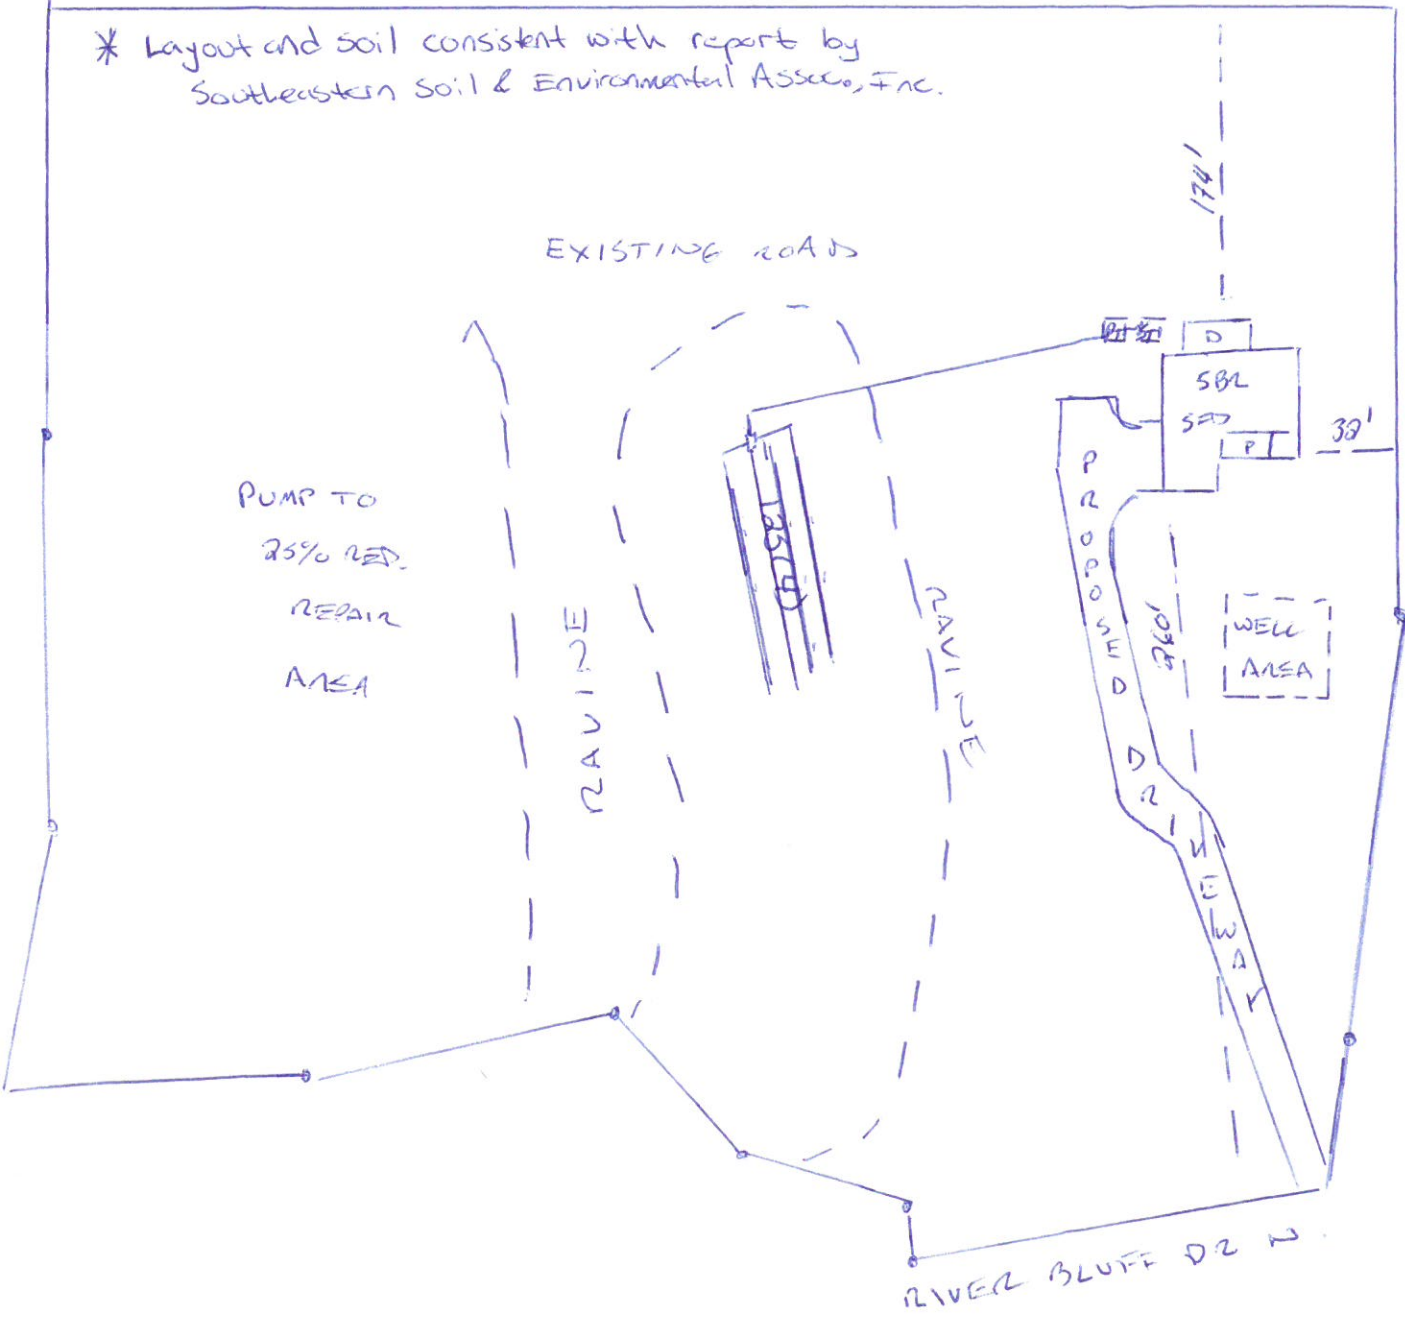 * Layout and soil consistent with report by
Southeastern Soil & Environmental Assoc., Inc.
174'
EXISTING ROADS
PT ST
D
5BR
SFD
P
32'
PUMP TO
25% RED.
REPAIR
AREA
RAVINE
125(4)
RAVINE
PROPOSED DRIVEWAY
260'
WELL
AREA
RIVER BLUFF DR N.